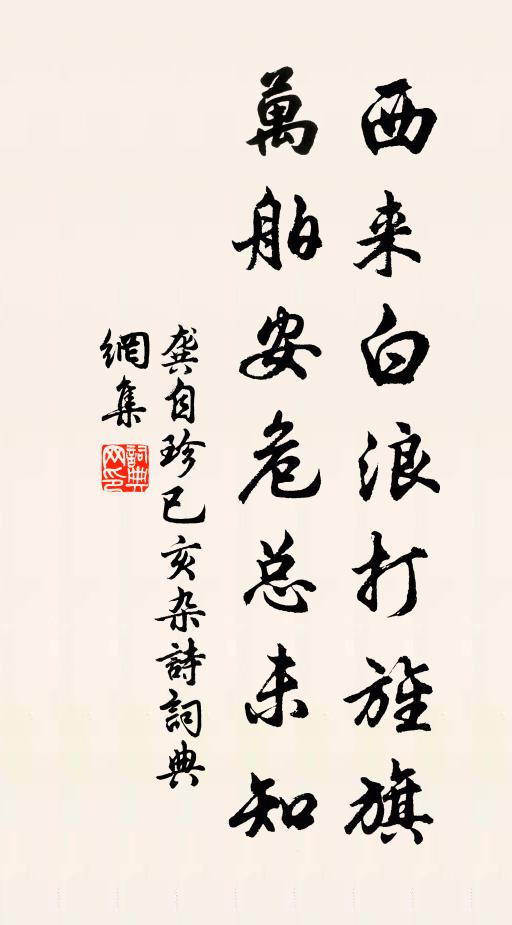 西来白浪打旌旗
萬舶安危总未知
龚自珍己亥杂詩詞典
網集
詞典
网印